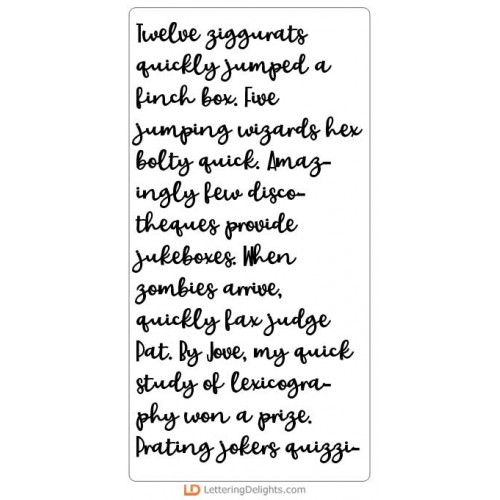 Twelve ziggurats
quickly jumped a
finch box. Five
jumping wizards hex
bolty quick. Amaz-
ingly few disco-
theques provide
jukeboxes. When
zombies arrive,
quickly fax judge
Pat. By Jove, my quick
study of lexicogra-
phy won a prize.
Prating jokers quizzi-
LD LetteringDelights.com